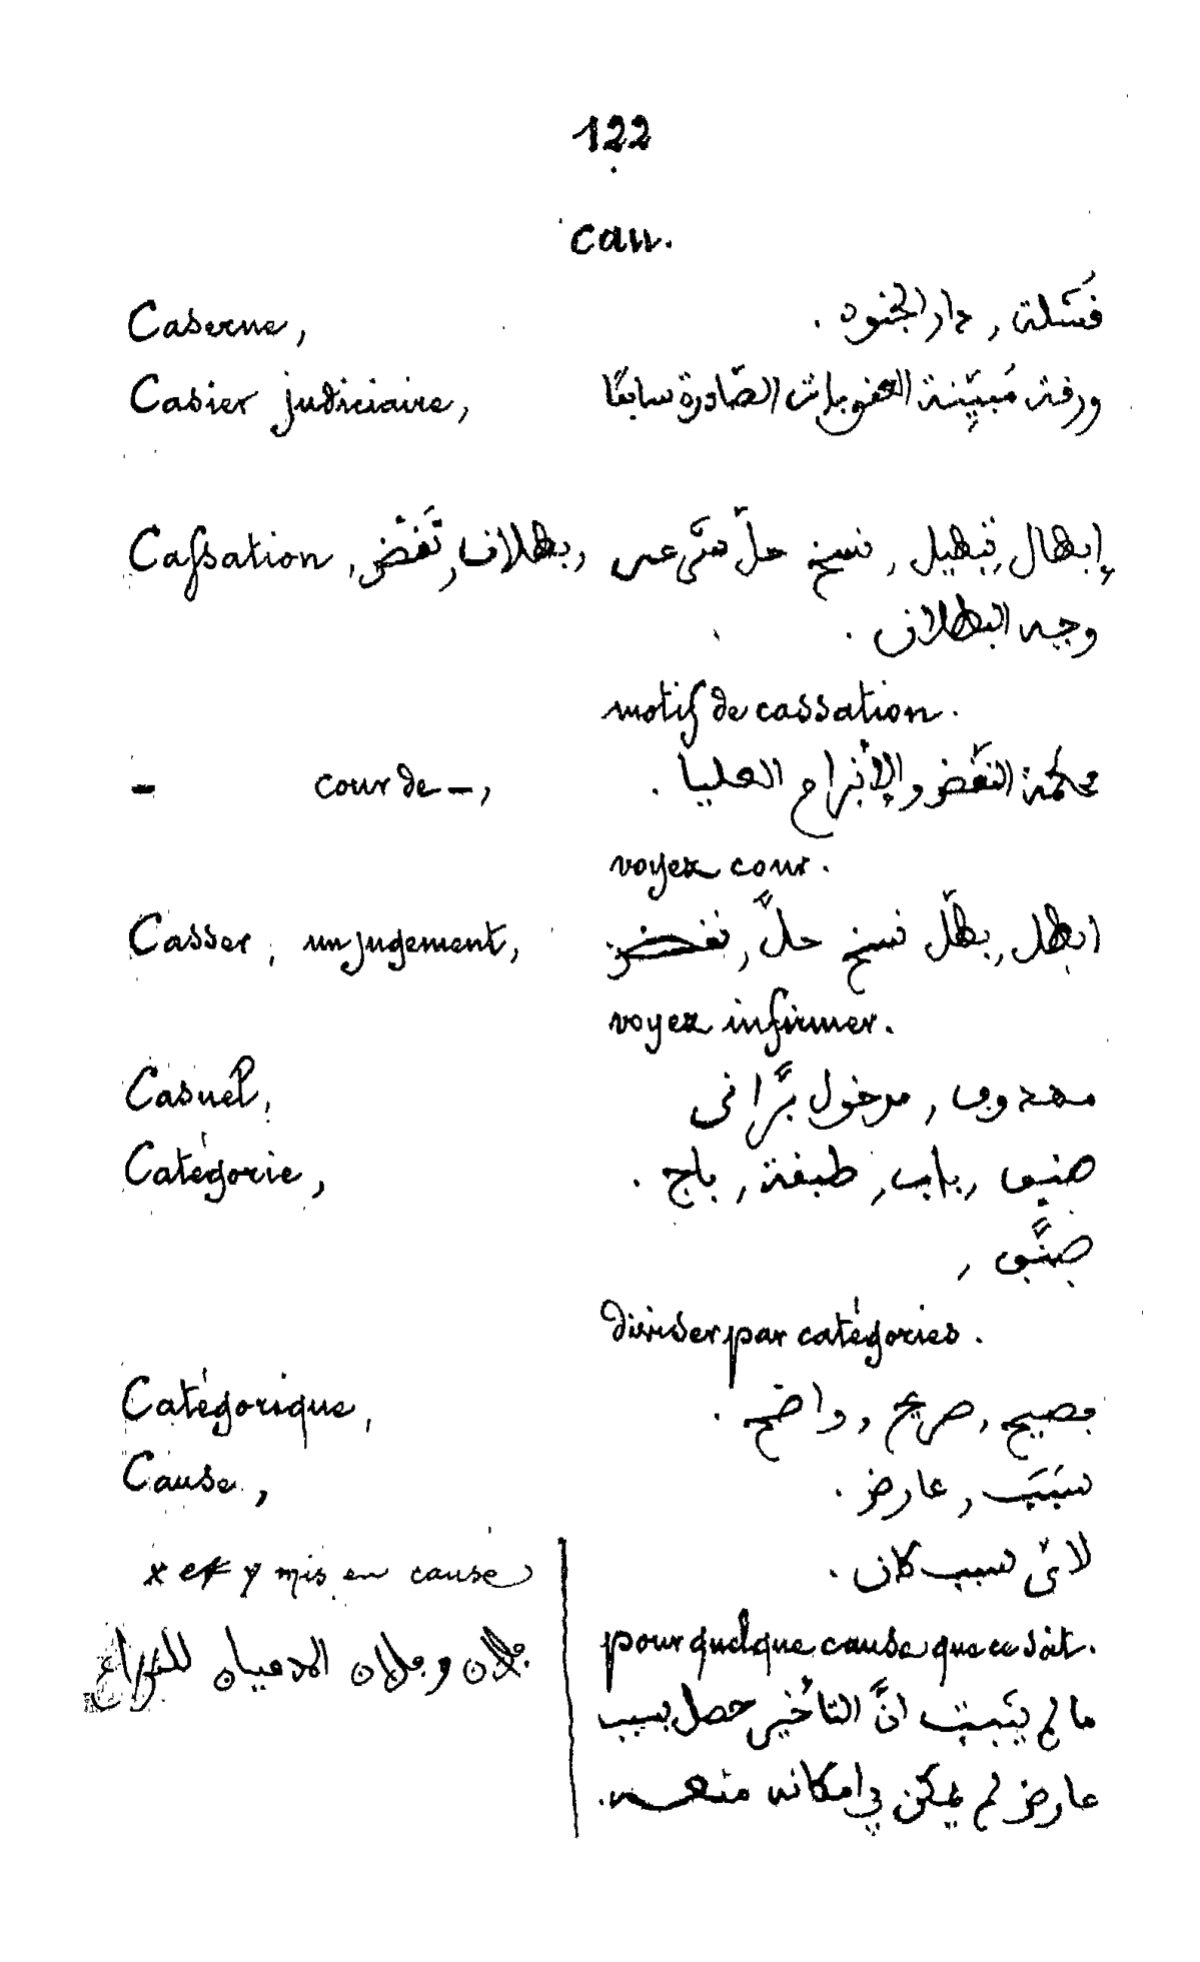 122
cau.
Caserne, قَشْلة, دار الجنود.
Casier judiciaire, ورقة مُبيِّنة العقوبات الصّادرة سابقًا
Cassation, إبطال, تبطيل, نسخ حلّ شَيء عن, بطلان, نَقْض,
وجه البطلان.
motif de cassation.
– cour de –, محكمة النَقْض والإبْرام العليا.
voyez cour.
Casser, un jugement, ابطل, بطّل نسخ حلَّ, نقض
voyez infirmer.
Casuel, مدخول بَرَّاني
Catégorie, صنف, باب, طبقة, باج.
صنَّف,
diviser par catégories.
Catégorique, فصيح, صريح, واضح.
Cause, سَبَب, عارض.
لاىّ سبب كان.
pour quelque cause que ce soit.
ما لم يَثبت انَّ التأخير حصل بسبب
عارض لم يمكن في امكانه منعه.
x et y mis en cause
فلان وفلان المدعيان للنزاع